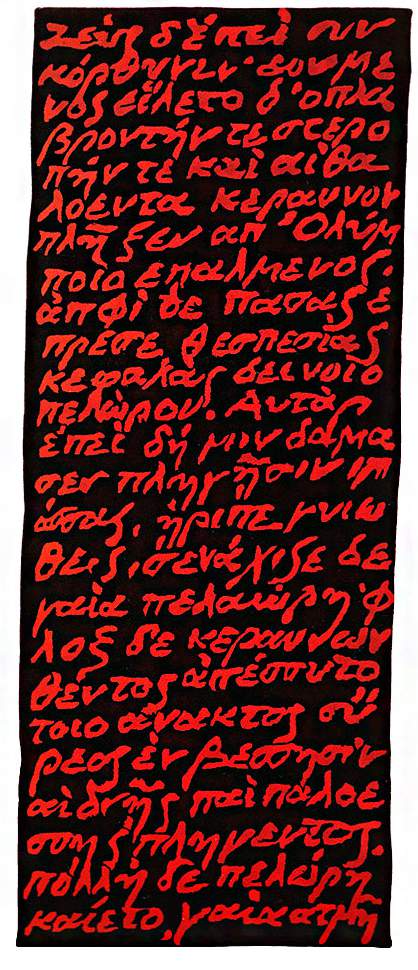 Ζεὺς δ' ἐπεὶ συν
κόρθυνεν ἑον μέ
νος εἵλετο δ' ὅπλα
βροντήν τε στερο
πήν τε καὶ αἰθα
λόεντα κεραυνον
πλῆξεν απ' Ὀλύμ
ποιο επαλμενος.
ἀπφὶ δε πασας ἐ
πρεσε θεσπεσίας
κεφαλὰς δεινοιο
πελώρου. Αυτὰρ
ἐπεὶ δή μιν δάμα
σεν πληγῇσιν ιμ
άσσας, ἤριπε γυιω
θεις, σενάχιζε δε
γαῖα πελώρη φ
λοξ δε κεραυνων
θέντος ἀπέσσυτο
τοιο ἄνακτος οὔ
ρεος ἐν βεσσησιν
αιδνῆς παιπαλοε
σσης πληγεντος.
πόλλὴ δε πελώρη
καίετο, γαῖα ατμῆ